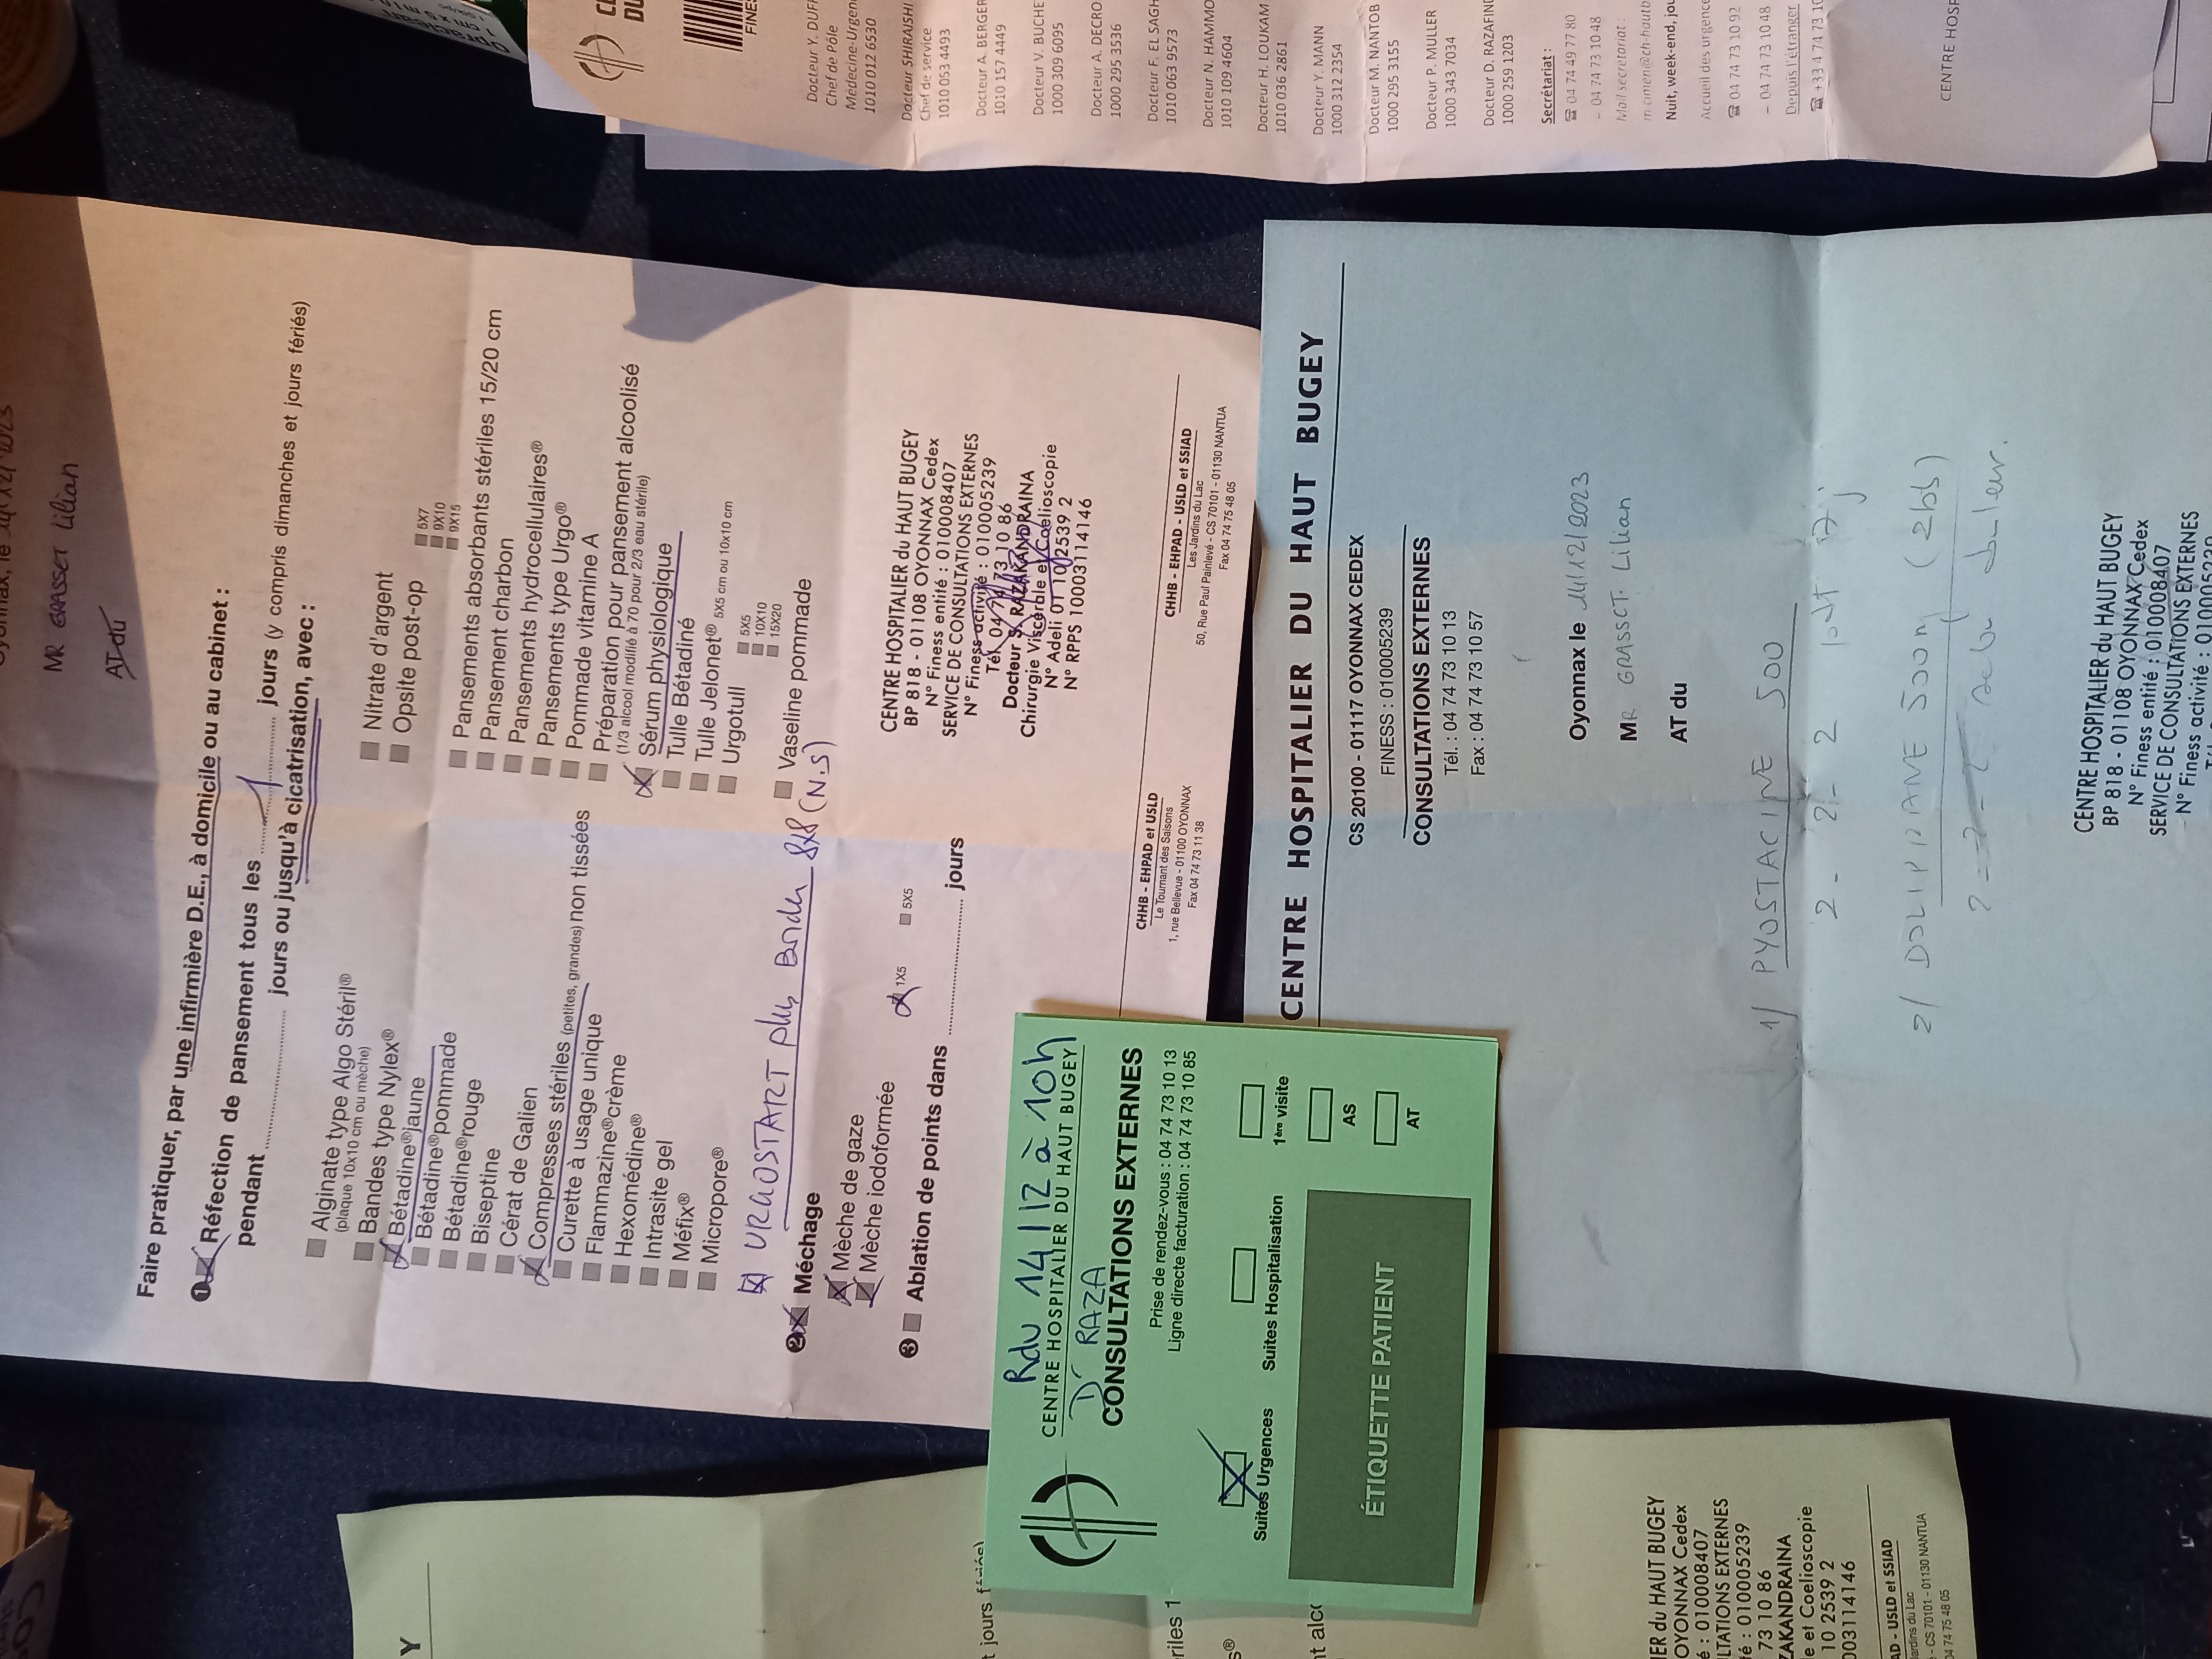 MR GRASSET Lilian
AT du
Faire pratiquer, par une infirmière D.E., à domicile ou au cabinet :
1 Réfection de pansement tous les 1 jours (y compris dimanches et jours fériés)
pendant jours ou jusqu'à cicatrisation, avec :
Alginate type Algo Stéril®
(plaque 10x10 cm ou mèche)
Bandes type Nylex®
Bétadine® jaune
Bétadine® pommade
Bétadine® rouge
Biseptine
Cérat de Galien
Compresses stériles (petites, grandes) non tissées
Curette à usage unique
Flammazine® crème
Hexomédine®
Intrasite gel
Méfix®
Micropore®
Nitrate d'argent
Opsite post-op
5X7
9X10
9X15
Pansements absorbants stériles 15/20 cm
Pansement charbon
Pansements hydrocellulaires®
Pansements type Urgo®
Pommade vitamine A
Préparation pour pansement alcoolisé
(1/3 alcool modifié à 70 pour 2/3 eau stérile)
Sérum physiologique
Tulle Bétadiné
Tulle Jelonet® 5X5 cm ou 10x10 cm
Urgotull
5X5
10X10
15X20
Vaseline pommade
URGOSTART plus Border 8X8 (N.S)
2 Méchage
Mèche de gaze
Mèche iodoformée
1X5
5X5
3 Ablation de points dans jours
CENTRE HOSPITALIER du HAUT BUGEY
BP 818 - 01108 OYONNAX Cedex
N° Finess entité : 010008407
SERVICE DE CONSULTATIONS EXTERNES
N° Finess activité : 010005239
Tél 04 74 73 10 86
Docteur S. RAZAKANDRAINA
Chirurgie Viscérale et Coelioscopie
N° Adeli 01 10 2539 2
N° RPPS 10003114146
CHHB - EHPAD et USLD
Le Tournant des Saisons
1, rue Bellevue - 01100 OYONNAX
Fax 04 74 73 11 38
CHHB - EHPAD - USLD et SSIAD
Les Jardins du Lac
50, Rue Paul Painlevé - CS 70101 - 01130 NANTUA
Fax 04 74 75 48 05
Rdv 14/12 à 10h
CENTRE HOSPITALIER DU HAUT BUGEY
Dr RAZA
CONSULTATIONS EXTERNES
Prise de rendez-vous : 04 74 73 10 13
Ligne directe facturation : 04 74 73 10 85
Suites Urgences
Suites Hospitalisation
1ère visite
AS
AT
ÉTIQUETTE PATIENT
CENTRE HOSPITALIER DU HAUT BUGEY
CS 20100 - 01117 OYONNAX CEDEX
FINESS : 010005239
CONSULTATIONS EXTERNES
Tél. : 04 74 73 10 13
Fax : 04 74 73 10 57
Oyonnax le 14/12/2023
MR GRASSET Lilian
AT du
1/ PYOSTACINE 500
2 - 2 - 2
2/ DOLIPRANE 500mg (2bs)
CENTRE HOSPITALIER du HAUT BUGEY
BP 818 - 01108 OYONNAX Cedex
N° Finess entité : 010008407
SERVICE DE CONSULTATIONS EXTERNES
N° Finess activité : 010005239
Docteur Y. DUFF
Chef de Pôle
Médecine-Urgen
1010 012 6530
Docteur SHIRAISHI
Chef de service
1010 053 4493
Docteur A. BERGER
1010 157 4449
Docteur V. BUCHE
1000 309 6095
Docteur A. DECRO
1000 295 3536
Docteur F. EL SAGH
1010 063 9573
Docteur N. HAMMO
1010 109 4604
Docteur H. LOUKAM
1010 036 2861
Docteur Y. MANN
1000 312 2354
Docteur M. NANTOB
1000 295 3155
Docteur P. MULLER
1000 343 7034
Docteur D. RAZAFIND
1000 259 1203
Secrétariat :
☎ 04 74 49 77 80
- 04 74 73 10 48
Mail secretariat :
m.cimen@ch-hautb
Nuit, week-end, jou
Accueil des urgence
☎ 04 74 73 10 92
- 04 74 73 10 48
Depuis l'étranger
☎ +33 4 74 73 10
CENTRE HOSP
Y
t jours fériés)
riles 1
nt alco
IER du HAUT BUGEY
OYONNAX Cedex
é : 010008407
LTATIONS EXTERNES
té : 010005239
73 10 86
ZAKANDRAINA
e et Coelioscopie
10 2539 2
003114146
AD - USLD et SSIAD
ardins du Lac
- CS 70101 - 01130 NANTUA
04 74 75 48 05